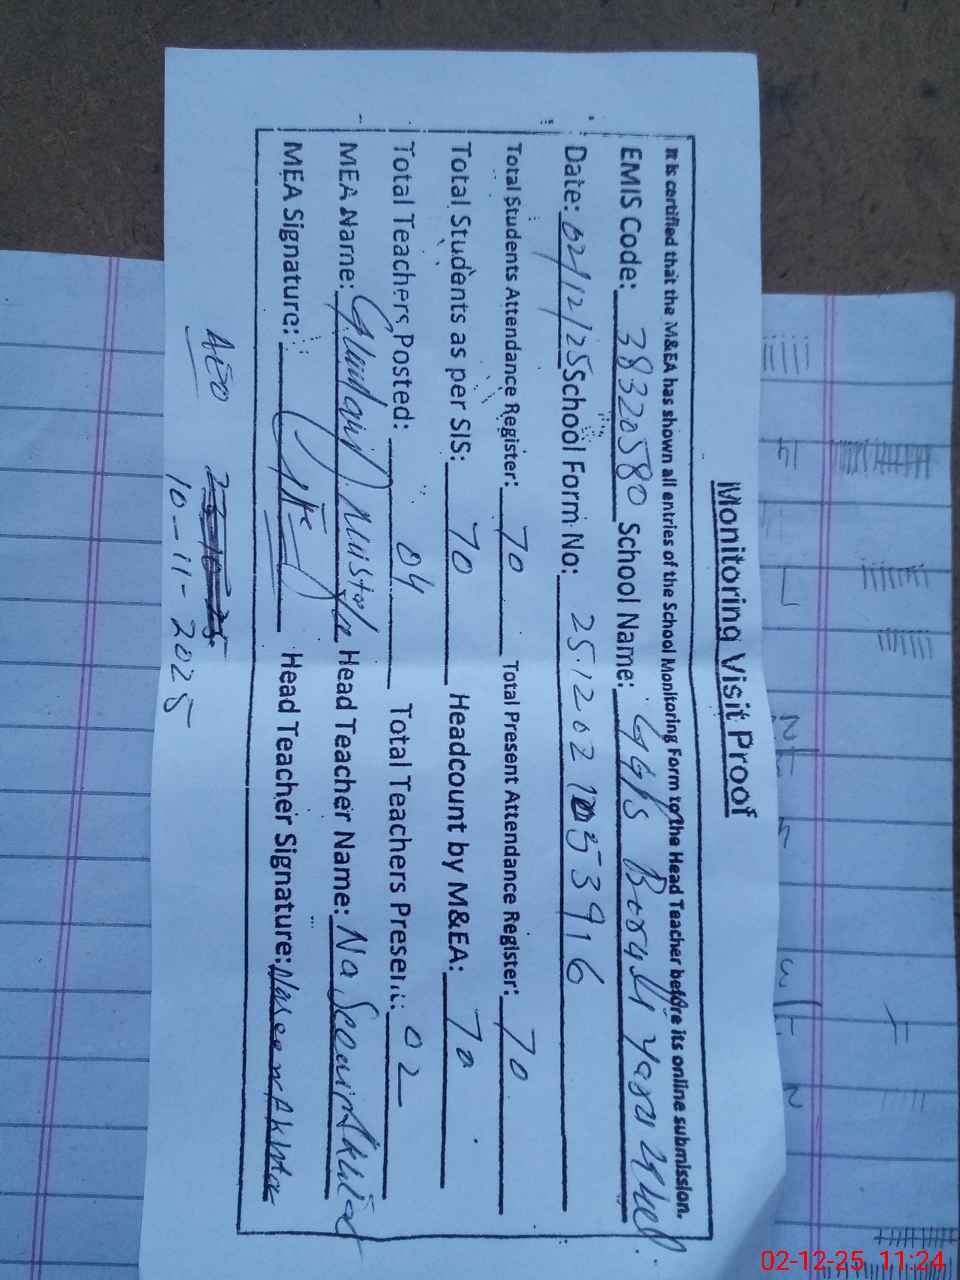 Monitoring Visit Proof
It is certified that the M&EA has shown all entries of the School Monitoring Form to the Head Teacher before its online submission.
EMIS Code: 38320580 School Name: GGPS
Date: 02/12/25 School Form No:
Total Students Attendance Register: 70 Total Present Attendance Register: 70
Total Students as per SIS: 70 Headcount by M&EA: 70
Total Teachers Posted: 04 Total Teachers Present: 02
MEA Name: Head Teacher Name: Naseem Akhtar
MEA Signature: Head Teacher Signature: Naseem Akhtar
AEO
10-11-2025
02-12-25 11:24